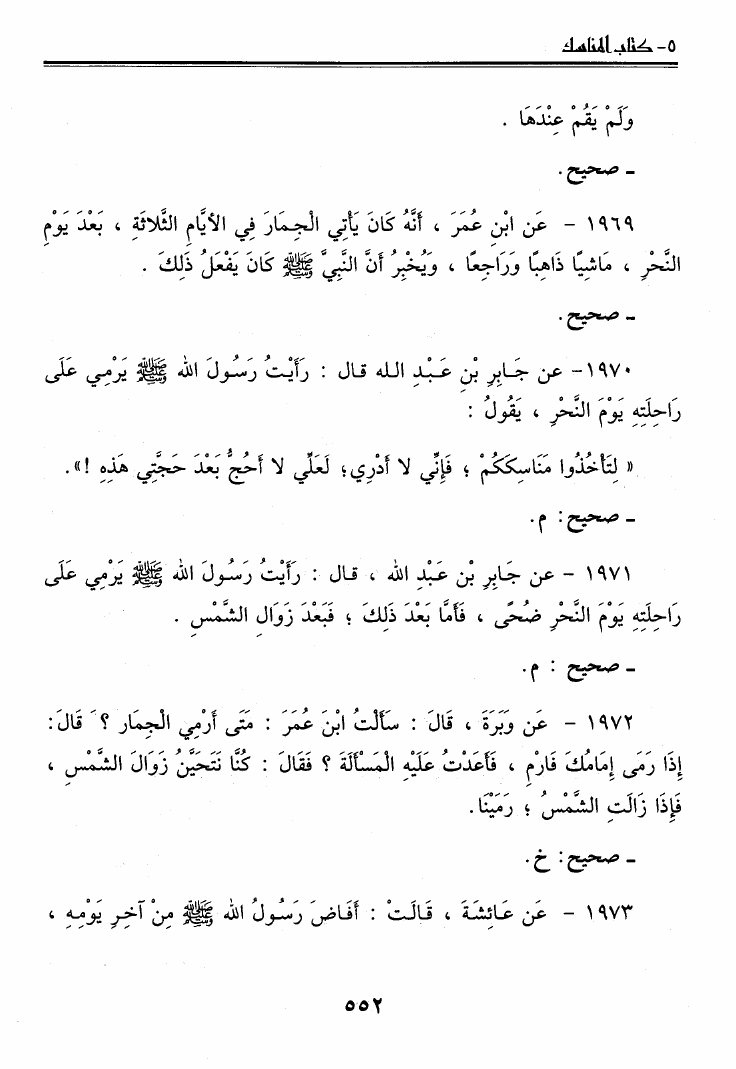 ٥- كتاب المناسك
وَلَمْ يَقُمْ عِنْدَهَا .
ـ صحيح.
١٩٦٩ - عَن ابْنِ عُمَرَ ، أَنَّهُ كَانَ يَأْتِي الْجِمَارَ فِي الأَيَّامِ الثَّلاثَةِ ، بَعْدَ يَوْمِ
النَّحْرِ ، مَاشِيًا ذَاهِبًا وَرَاجِعًا ، وَيُخْبِرُ أَنَّ النَّبِيَّ ﷺ كَانَ يَفْعَلُ ذَلِكَ .
ـ صحيح.
١٩٧٠- عن جَابِرِ بْنِ عَبْدِ الله قال : رَأَيْتُ رَسُولَ الله ﷺ يَرْمِي عَلَى
رَاحِلَتِهِ يَوْمَ النَّحْرِ ، يَقُولُ :
« لِتَأْخُذُوا مَنَاسِكَكُمْ ؛ فَإِنِّي لا أَدْرِي؛ لَعَلِّي لا أَحُجُّ بَعْدَ حَجَّتِي هَذِهِ !».
ـ صحيح: م.
١٩٧١ - عن جَابِرِ بْنِ عَبْدِ الله ، قال : رَأَيْتُ رَسُولَ الله ﷺ يَرْمِي عَلَى
رَاحِلَتِهِ يَوْمَ النَّحْرِ ضُحًى ، فَأَمَّا بَعْدَ ذَلِكَ ؛ فَبَعْدَ زَوَالِ الشَّمْسِ .
ـ صحيح : م.
١٩٧٢ - عَن وَبَرَةَ ، قَالَ : سَأَلْتُ ابْنَ عُمَرَ : مَتَى أَرْمِي الْجِمَارِ ؟ قَالَ:
إِذَا رَمَى إِمَامُكَ فَارْمِ ، فَأَعَدْتُ عَلَيْهِ الْمَسْأَلَةَ ؟ فَقَالَ : كُنَّا نَتَحَيَّنُ زَوَالَ الشَّمْسِ ،
فَإِذَا زَالَتِ الشَّمْسُ ؛ رَمَيْنَا.
ـ صحيح: خ.
١٩٧٣ - عَن عَائِشَةَ ، قَالَتْ : أَفَاضَ رَسُولُ الله ﷺ مِنْ آخِرِ يَوْمِهِ ،
٥٥٢